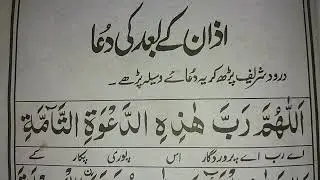 اذان کے بعد کی دُعا
درود شریف پڑھ کر یہ دُعائے وسیلہ پڑھے۔
اَللّٰهُمَّ رَبَّ هٰذِهِ الدَّعْوَةِ التَّآمَّةِ
اے رب اے پروردگار اس پوری پکار کے